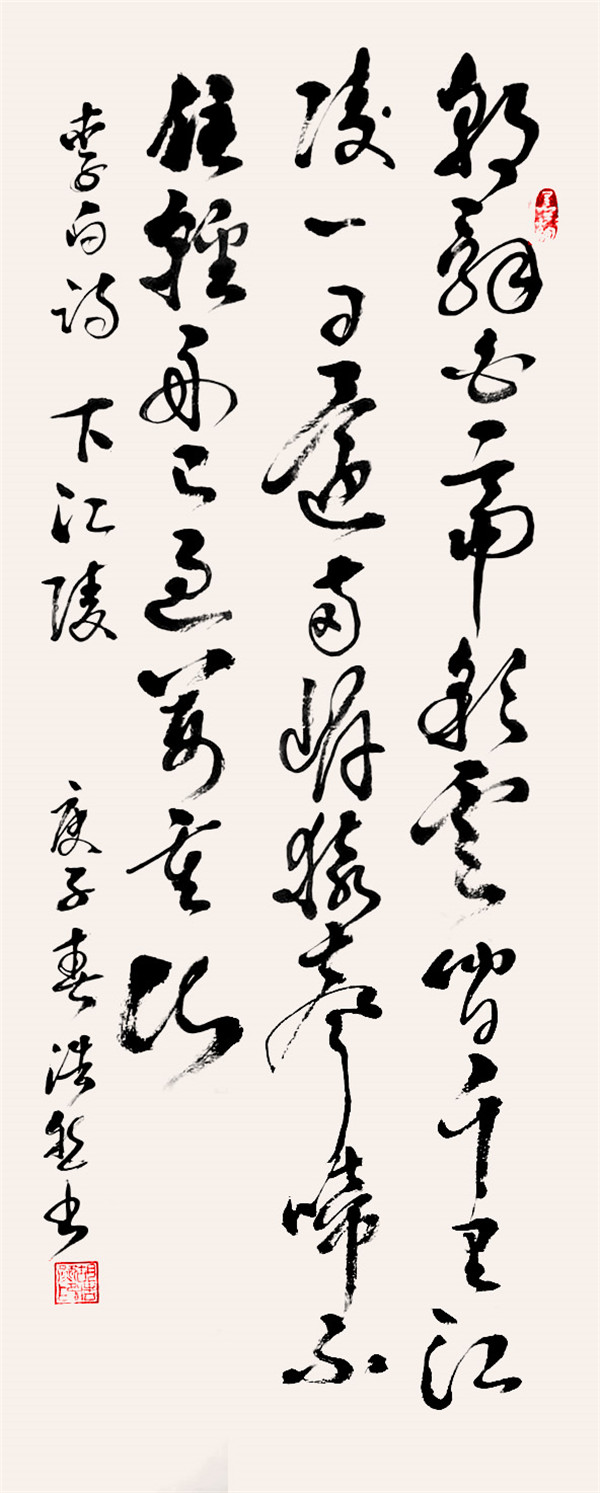 朝辭白帝彩雲間千里江
陵一日還兩岸猿聲啼不
住輕舟已過萬重山
李白詩 下江陵 庚子春浩然书